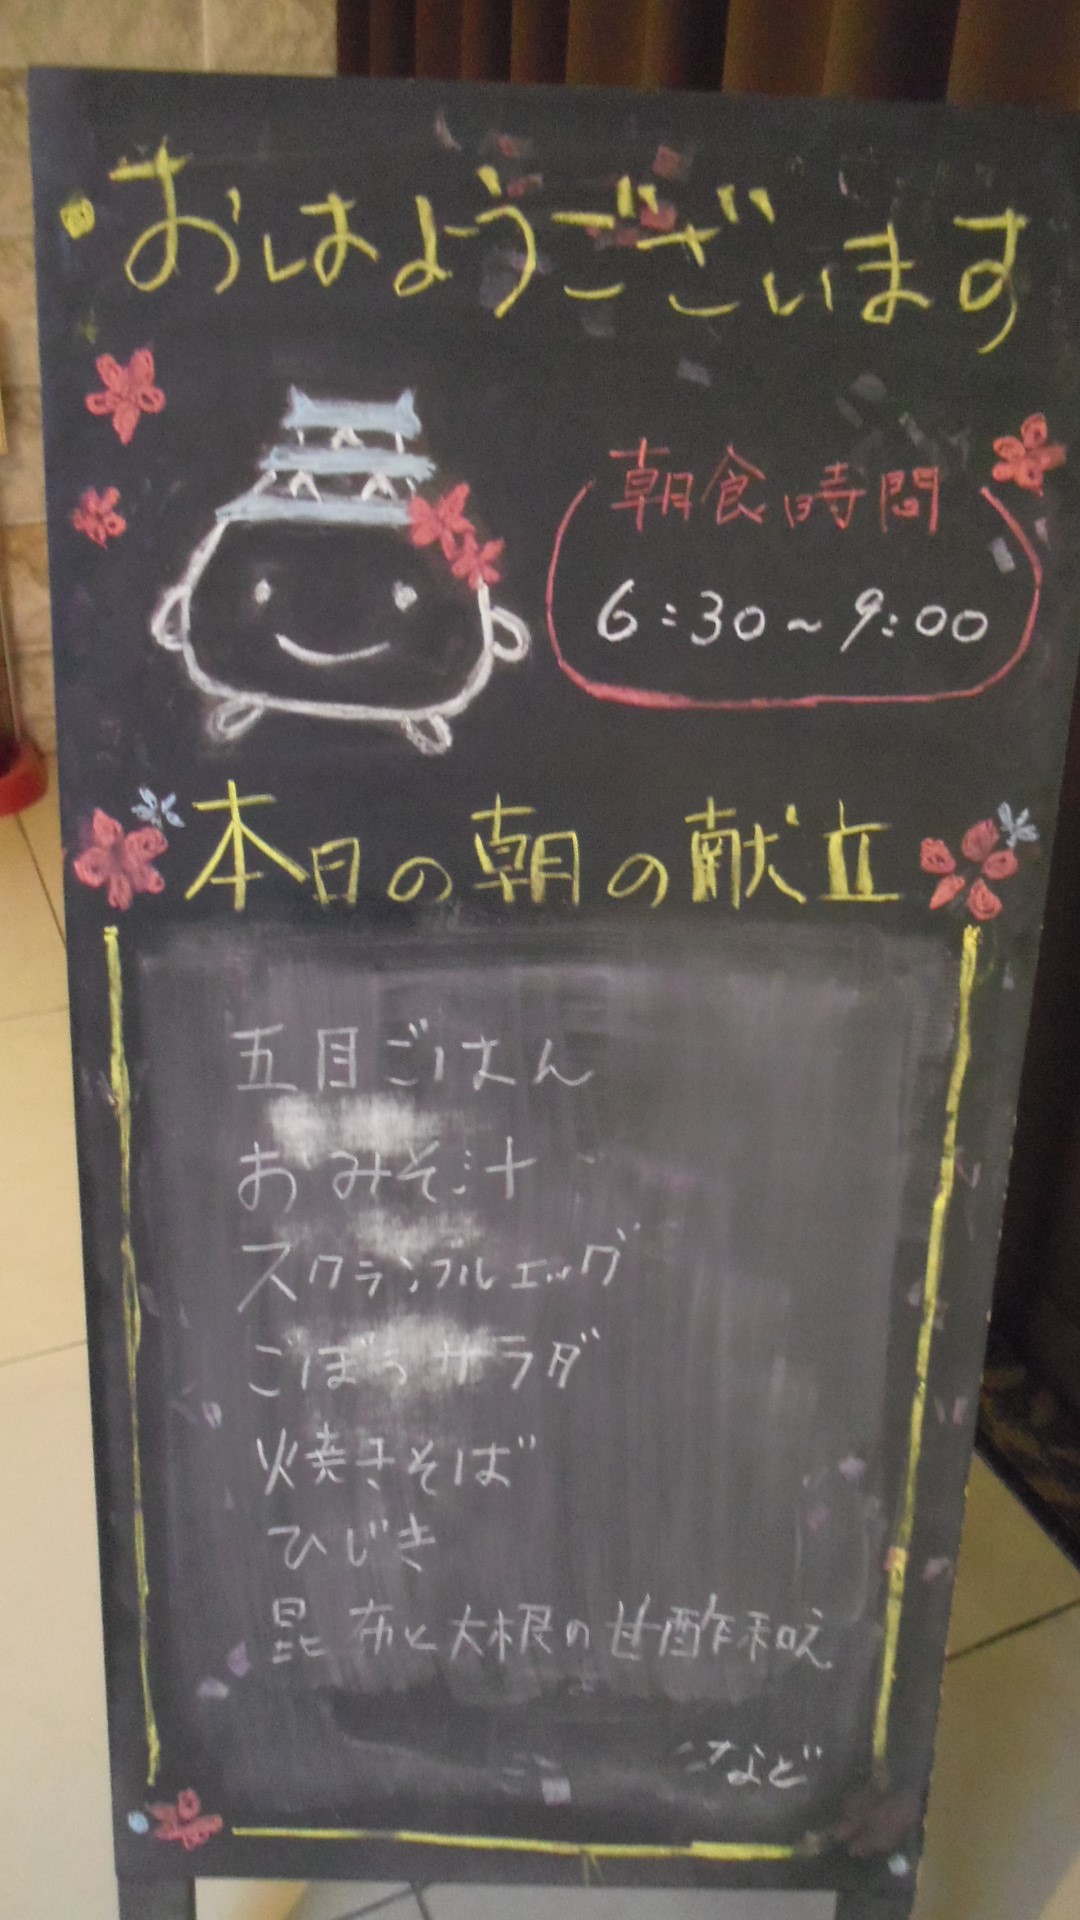 おはようございます
朝食時間
6:30~9:00
本日の朝の献立
五目ごはん
おみそ汁
スクランブルエッグ
ごぼうサラダ
焼きそば
ひじき
昆布と大根の甘酢和え
など